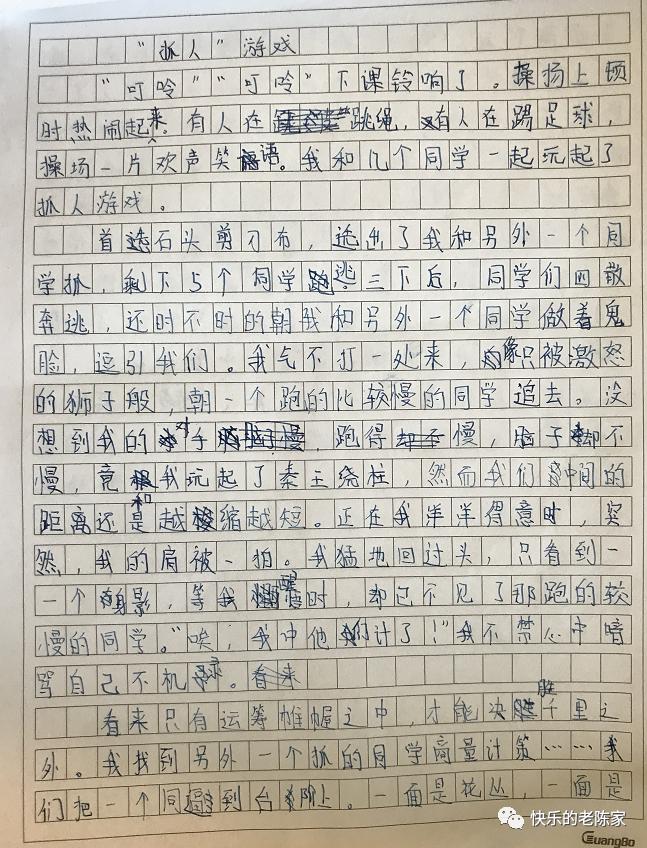 “抓人”游戏
“叮呤”“叮呤”下课铃响了。操场上顿
时热闹起来。有人在跳绳，有人在踢足球，
操场一片欢声笑语。我和几个同学一起玩起了
抓人游戏。
首选石头剪刀布，选出了我和另外一个同
学抓，剩下5个同学逃。三下后，同学们四散
奔逃，还时不时的朝我和另外一个同学做着鬼
脸，逗引我们。我气不打一处来，像只被激怒
的狮子般，朝一个跑的比较慢的同学追去。没
想到我的对手跑得慢，脑子却不
慢，竟和我玩起了秦王绕柱，然而我们中间的
距离还是越缩越短。正在我洋洋得意时，突
然，我的肩被一拍。我猛地回过头，只看到一
一个身影，等我醒悟时，却已不见了那跑的较
慢的同学。“唉，我中他们计了！”我不禁心中暗
骂自己不机灵。
看来只有运筹帷幄之中，才能决胜千里之
外。我找到另外一个抓的同学商量计策……我
们把一个同逼到台阶上。一面是花丛，一面是
快乐的老陈家
GuangBo